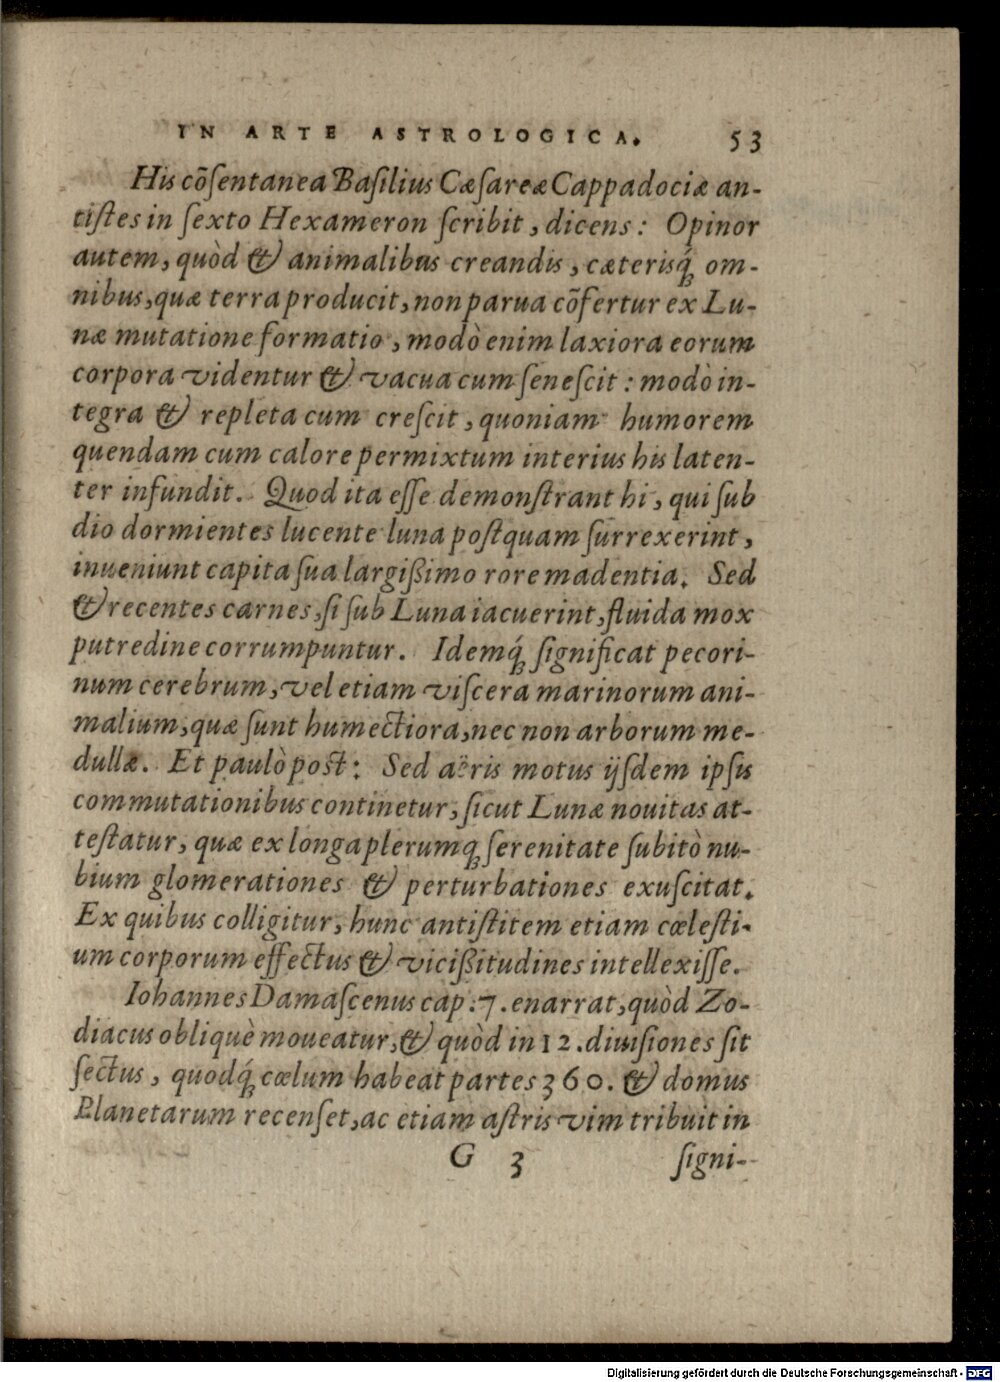 IN ARTE ASTROLOGICA. 53
His cõſentanea Baſilius Cæſareæ Cappadociæ an-
tiſtes in ſexto Hexameron ſcribit, dicens: Opinor
autem, quòd & animalibus creandis, cæterisq́; om-
nibus, quæ terra producit, non parua cõfertur ex Lu-
næ mutatione formatio, modò enim laxiora eorum
corpora videntur & vacua cum ſeneſcit: modò in-
tegra & repleta cum creſcit, quoniam humorem
quendam cum calore permixtum interius his laten-
ter infundit. Quod ita eſſe demonſtrant hi, qui ſub
dio dormientes lucente luna poſtquam ſurrexerint,
inueniunt capita ſua largißimo rore madentia. Sed
& recentes carnes, ſi ſub Luna iacuerint, fluida mox
putredine corrumpuntur. Idemq́; ſignificat pecori-
num cerebrum, vel etiam viſcera marinorum ani-
malium, quæ ſunt humectiora, nec non arborum me-
dullæ. Et paulò pòſt: Sed aëris motus ijſdem ipſis
commutationibus continetur, ſicut Lunæ nouitas at-
teſtatur, quæ ex longa plerumq; ſerenitate ſubitò nu-
bium glomerationes & perturbationes exuſcitat.
Ex quibus colligitur, hunc antiſtitem etiam cœleſti-
um corporum effectus & vicißitudines intellexiſſe.
Iohannes Damaſcenus cap. 7. enarrat, quòd Zo-
diacus obliquè moueatur, & quòd in 12. diuiſiones ſit
ſectus, quodq́; cœlum habeat partes 360. & domus
Planetarum recenſet, ac etiam aſtris vim tribuit in
G 3 ſigni-
Digitalisierung gefördert durch die Deutsche Forschungsgemeinschaft - DFG